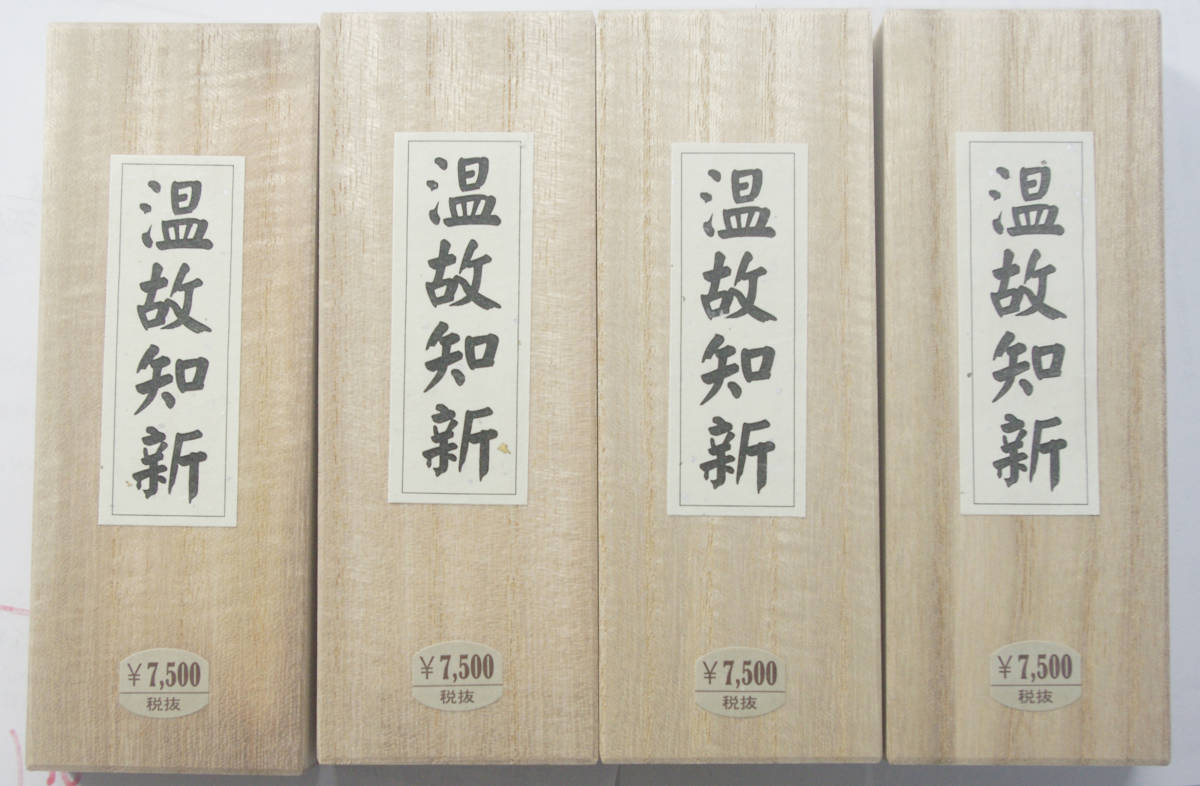 温故知新
¥7,500
税抜
温故知新
¥7,500
税抜
温故知新
¥7,500
税抜
温故知新
¥7,500
税抜